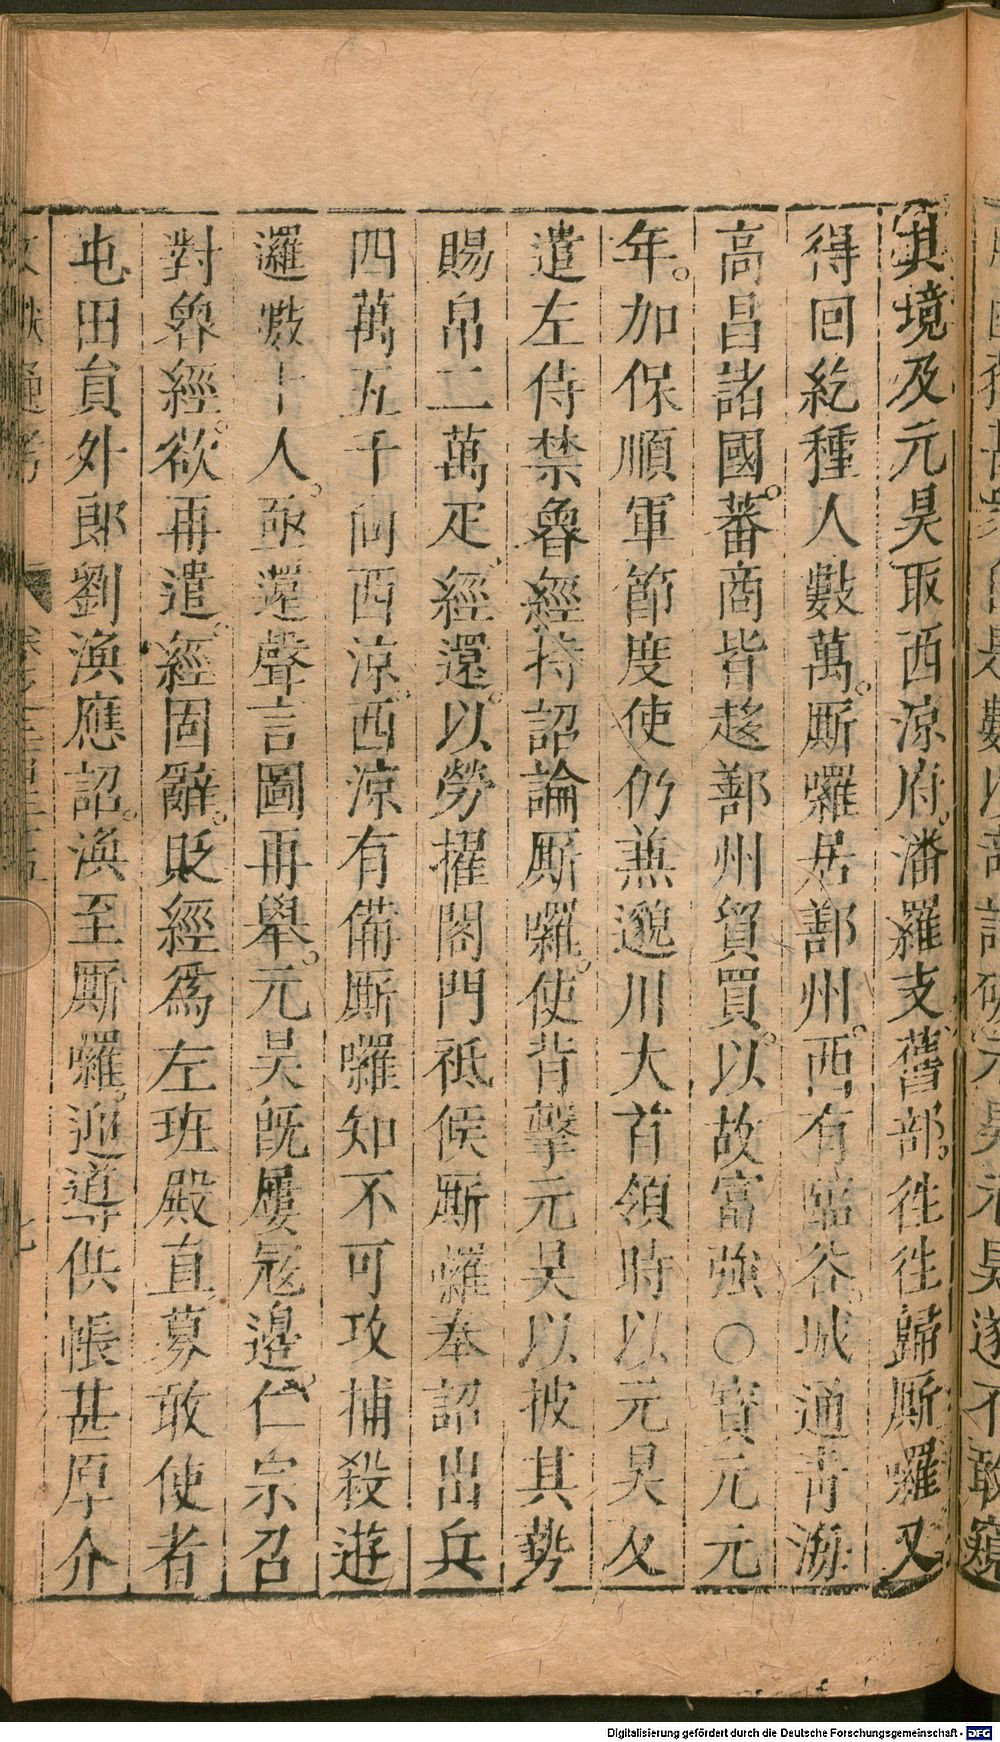 其境及元昊取西涼府。潘羅支舊部。徃徃歸厮囉又
得回紇種人數萬。厮囉居鄯州。西有臨谷。城通青海
高昌諸國。蕃商皆趍鄯州貿買。以故富強○寳元元
年。加保順軍節度使仍兼邈川大首領時以元昊反
遣左侍禁魯經持詔諭厮囉。使背擊元昊以披其勢
賜帛二萬疋。經還。以勞擢閤門祗候厮囉奉詔出兵
四萬五千向西涼。西涼有備厮囉知不可攻捕殺遊
邏數十人。亟還聲言圖再舉。元昊旣屢冦邊。仁宗召
對魯經。欲再遣。經固辭。貶經爲左班殿直募敢使者
屯田員外郎劉渙應詔。渙至厮囉。迎導供帳甚厚介
文獻通考
七
Digitalisierung gefördert durch die Deutsche Forschungsgemeinschaft - DFG